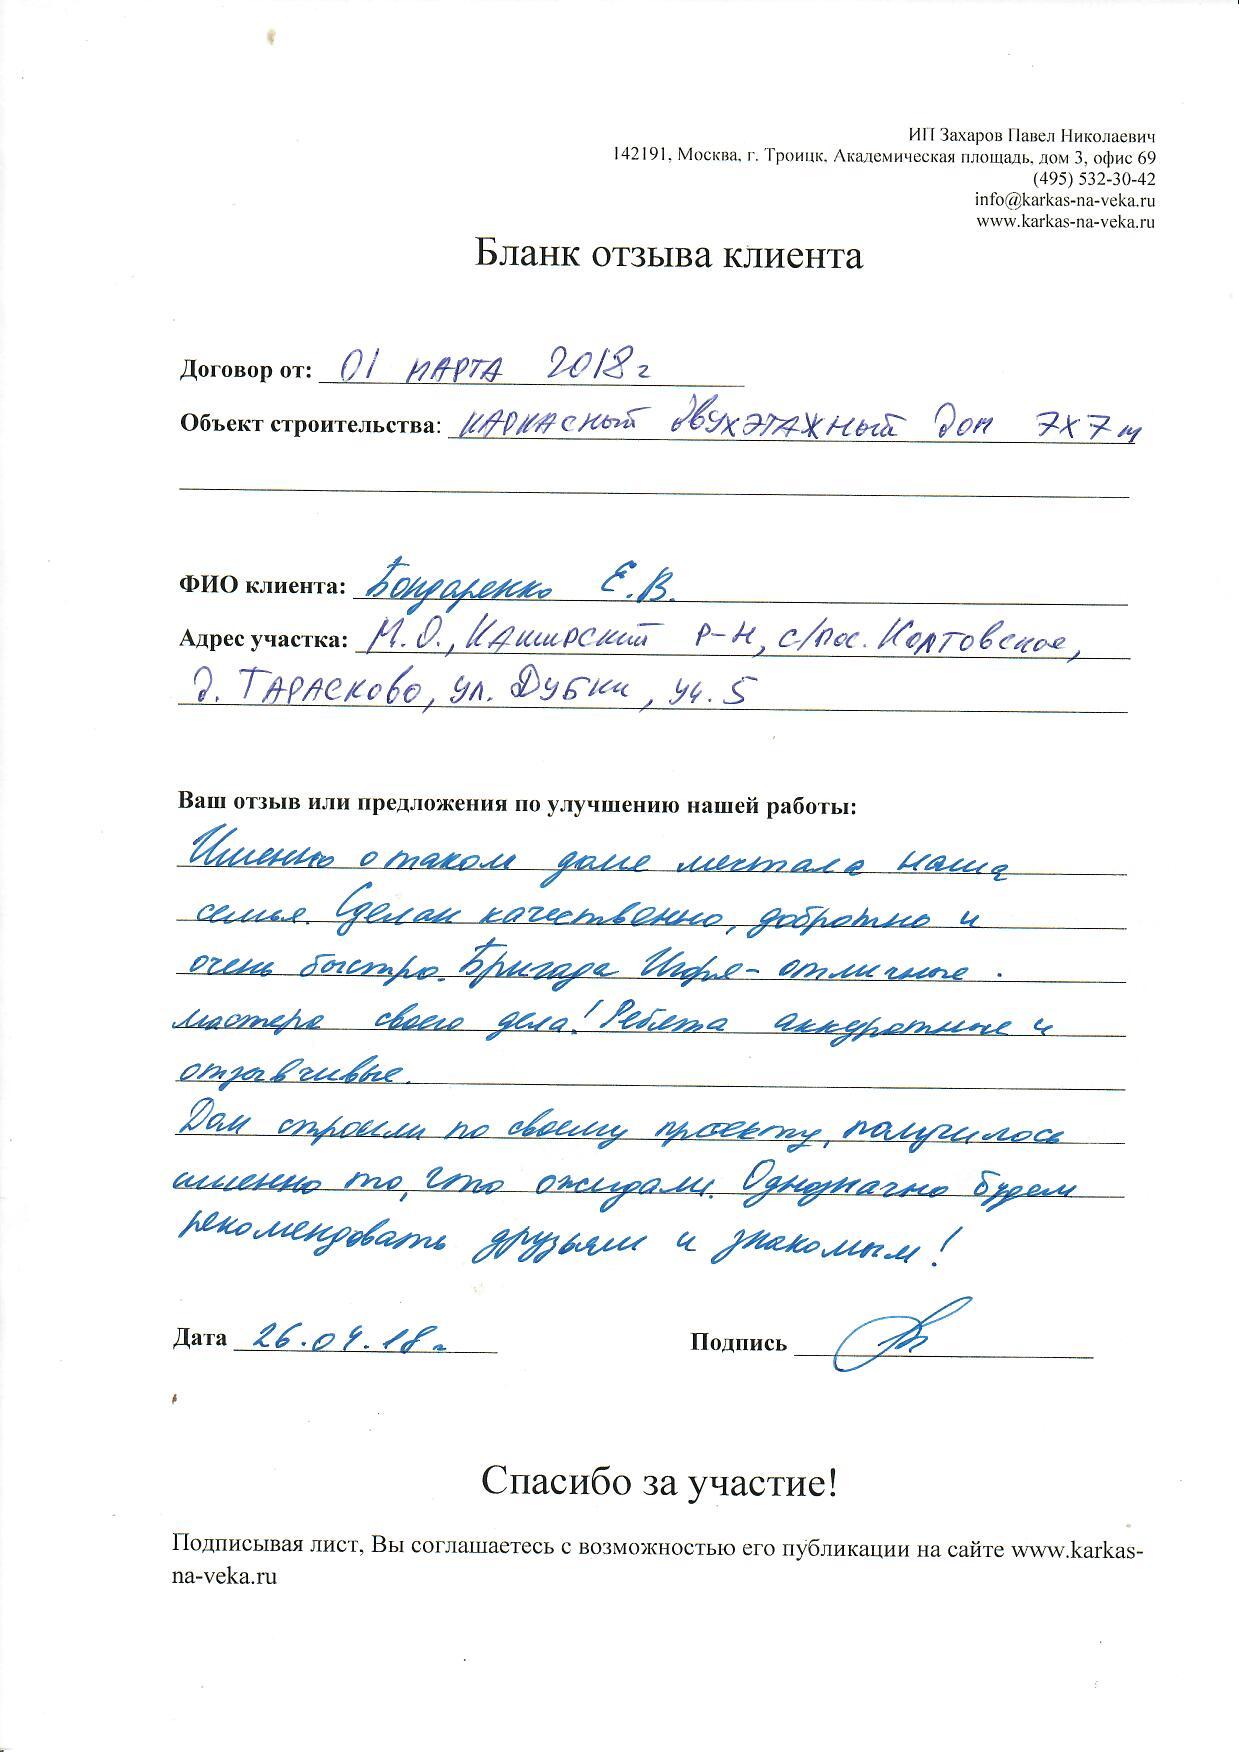 ИП Захаров Павел Николаевич
142191, Москва, г. Троицк, Академическая площадь, дом 3, офис 69
(495) 532-30-42
info@karkas-na-veka.ru
www.karkas-na-veka.ru
Бланк отзыва клиента
Договор от: 01 МАРТА 2018 г
Объект строительства: КАРКАСНЫЙ ДВУХЭТАЖНЫЙ ДОМ 7Х7м
ФИО клиента: Бондаренко Е.В.
Адрес участка: М.О., КАШИРСКИЙ Р-Н, с/пос. Колтовское,
д. ТАРАСКОВО, ул. ДУБКИ, уч. 5
Ваш отзыв или предложения по улучшению нашей работы:
Именно о таком доме мечтала наша
семья. Сделан качественно, добротно и
очень быстро. Бригада Игоря - отличные
мастера своего дела! Ребята аккуратные и
отзывчивые.
Дом строили по своему проекту, получилось
именно то, что ожидали. Однозначно будем
рекомендовать друзьям и знакомым!
Дата 26.04.18 г. Подпись
Спасибо за участие!
Подписывая лист, Вы соглашаетесь с возможностью его публикации на сайте www.karkas-
na-veka.ru